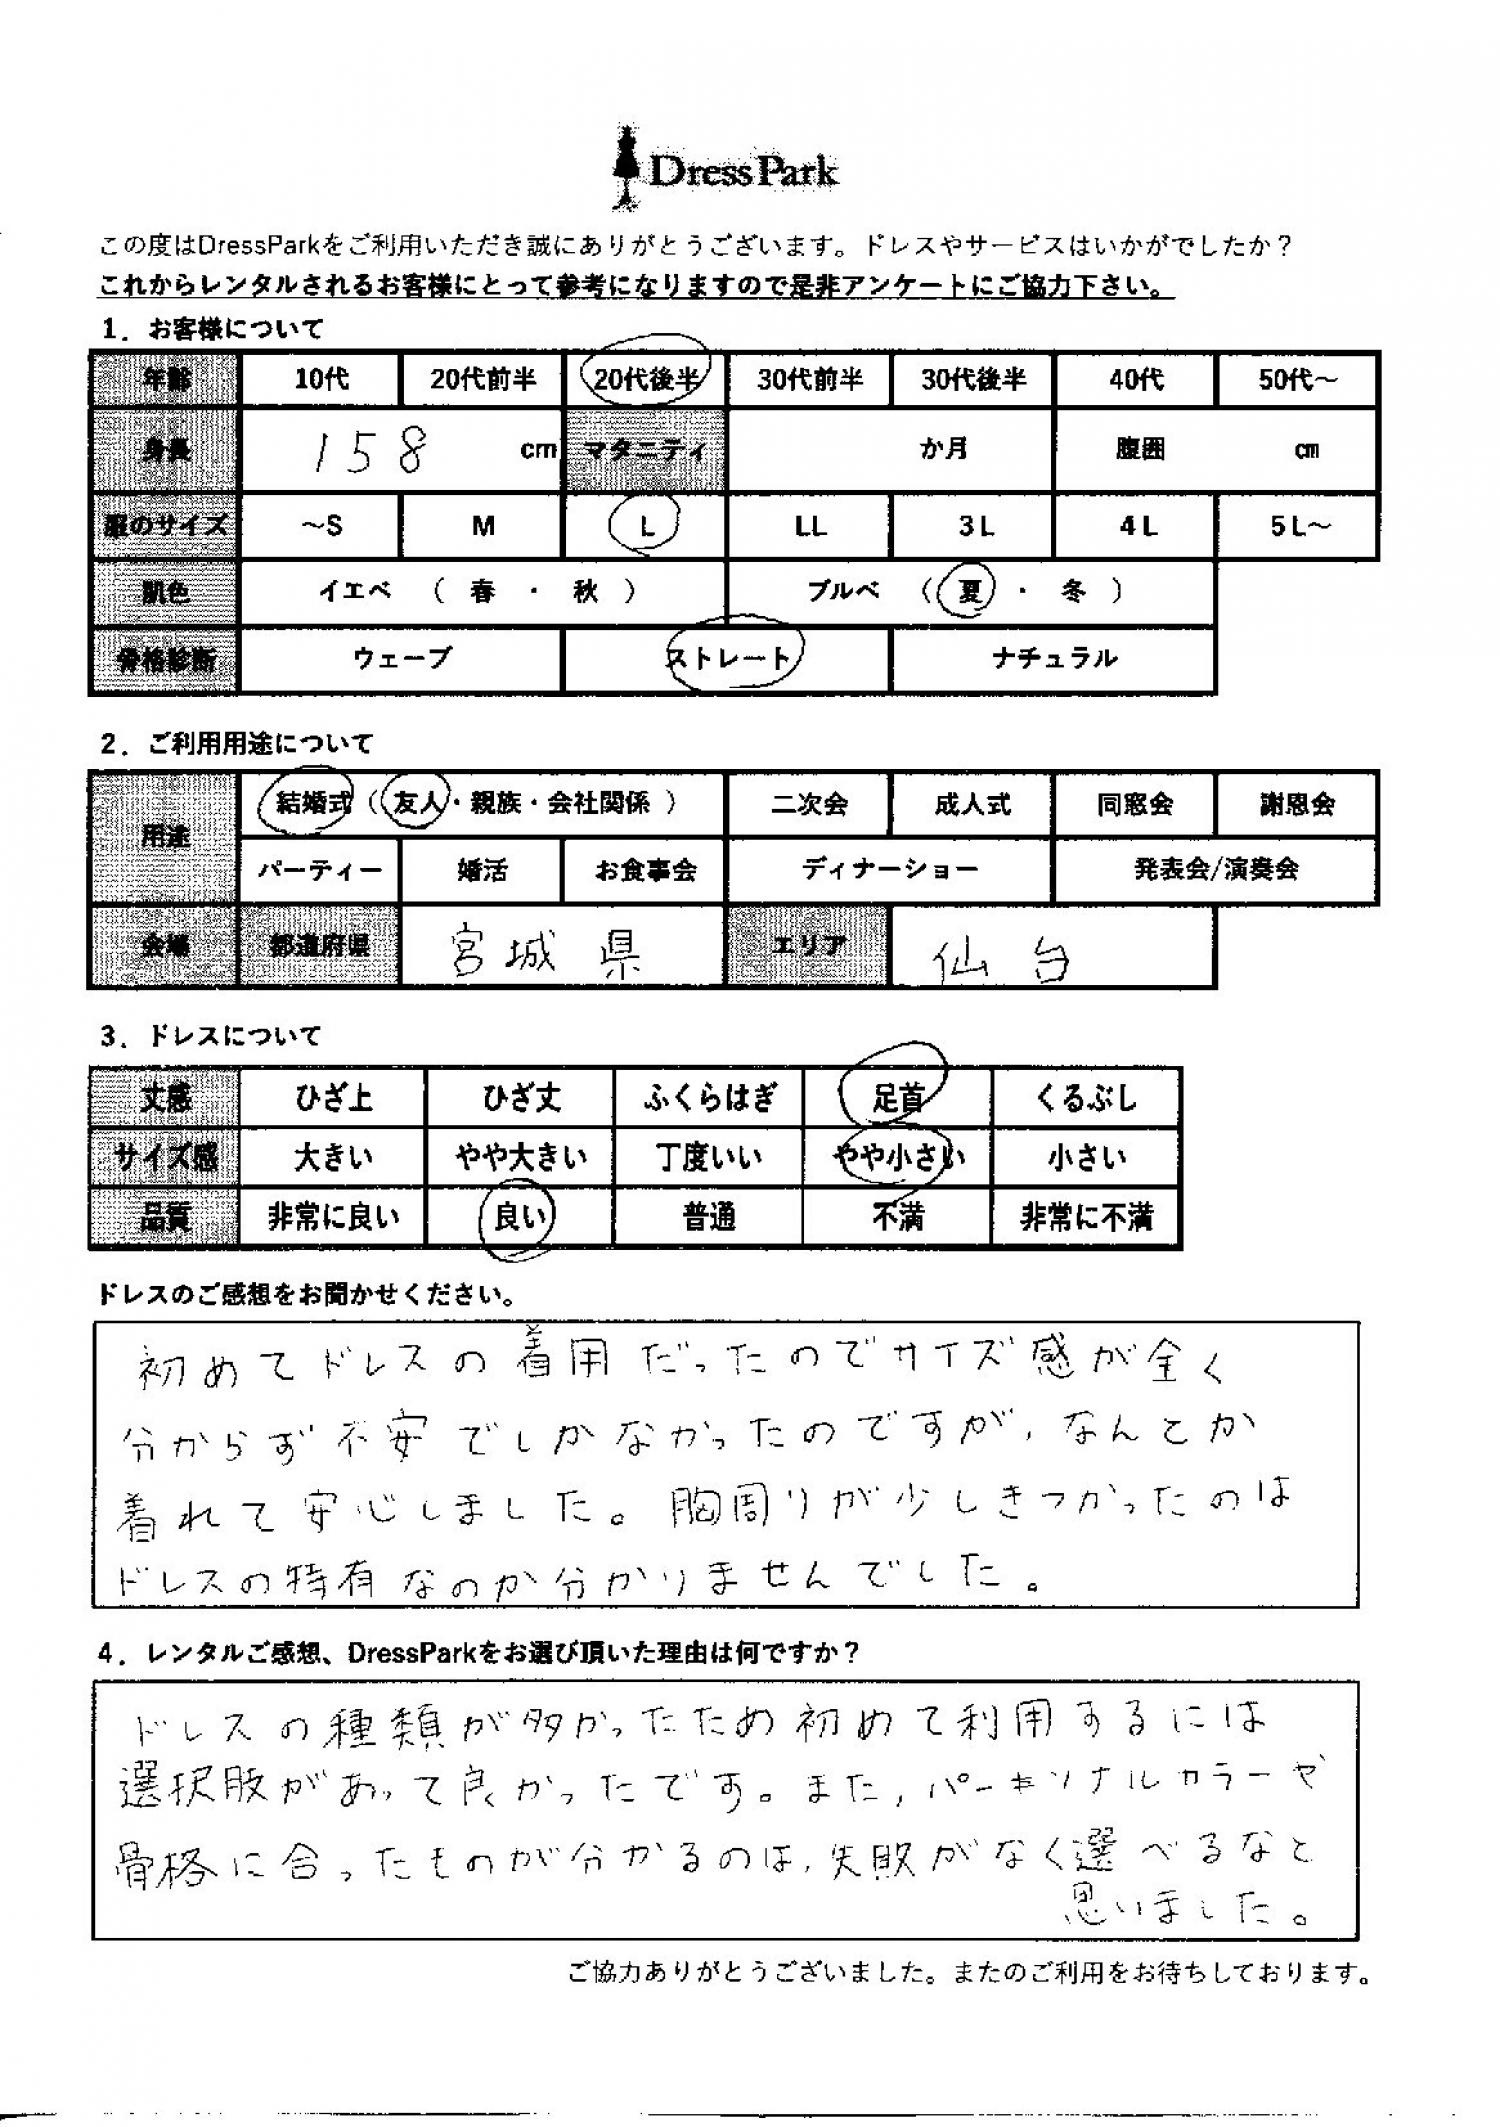 DressPark
この度はDressParkをご利用いただき誠にありがとうございます。ドレスやサービスはいかがでしたか？
これからレンタルされるお客様にとって参考になりますので是非アンケートにご協力下さい。
1．お客様について
年齢 10代 20代前半 20代後半 30代前半 30代後半 40代 50代～
身長 158 cm マタニティ か月 腹囲 cm
服のサイズ ～S M L LL 3L 4L 5L～
肌色 イエベ （ 春 ・ 秋 ） ブルベ （ 夏 ・ 冬 ）
骨格診断 ウェーブ ストレート ナチュラル
2．ご利用用途について
用途 結婚式（ 友人・親族・会社関係 ） 二次会 成人式 同窓会 謝恩会
パーティー 婚活 お食事会 ディナーショー 発表会/演奏会
会場 都道府県 宮城県 エリア 仙台
3．ドレスについて
丈感 ひざ上 ひざ丈 ふくらはぎ 足首 くるぶし
サイズ感 大きい やや大きい 丁度いい やや小さい 小さい
品質 非常に良い 良い 普通 不満 非常に不満
ドレスのご感想をお聞かせください。
初めてドレスの着用だったのでサイズ感が全く
分からず不安でしかなかったのですが，なんとか
着れて安心しました。胸周りが少しきつかったのは
ドレスの特有なのか分かりませんでした。
4．レンタルご感想、DressParkをお選び頂いた理由は何ですか？
ドレスの種類が多かったため初めて利用するには
選択肢があって良かったです。また，パーキソナルカラーや
骨格に合ったものが分かるのは，失敗がなく選べるなと
思いました。
ご協力ありがとうございました。またのご利用をお待ちしております。